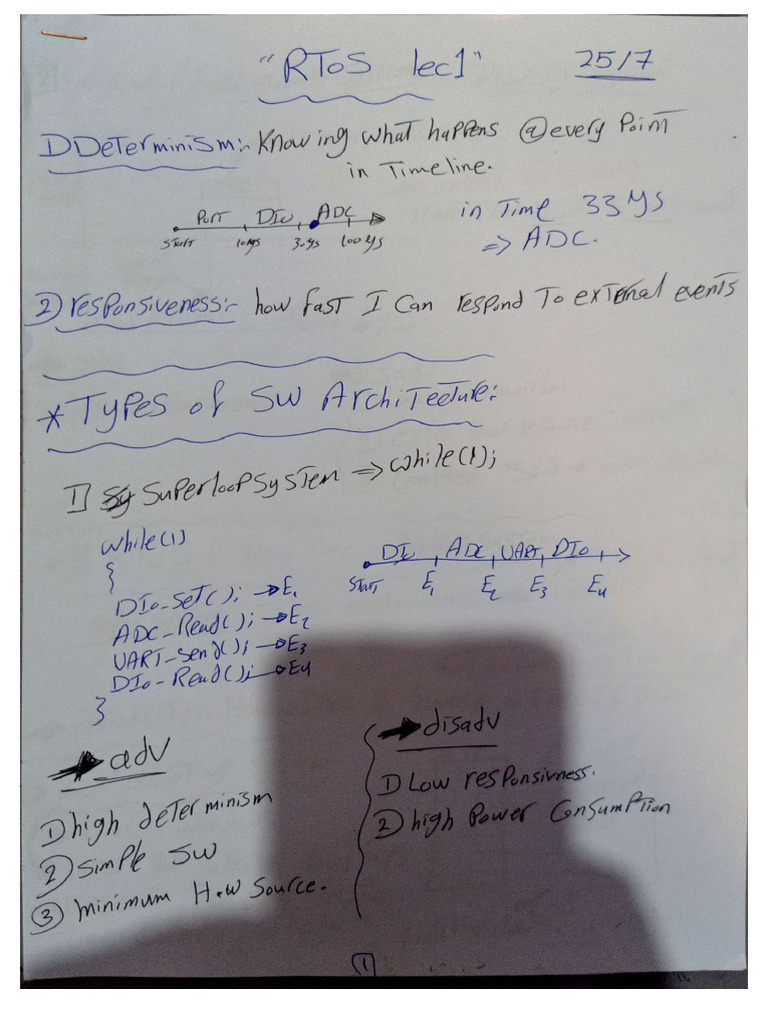 "RToS lec1"
25/7
1) DeTerminism:- Knowing what happens @ every Point
in Timeline.
Port DIo ADC
START 10 Ms 30 Ms 100 Ms
in Time 33 Ms
=> ADC.
2) responsiveness:- how fast I Can respond To external events
* Types of SW Architecture:
1] SuperloopSystem => while(1);
while(1)
{
DIo_Set(); → E1
ADC_Read(); → E2
UART_Send(); → E3
DIo_Read(); → E4
}
DIo ADC UART DIo
START E1 E2 E3 E4
→ adv
1) high determinism
2) Simple SW
3 minimum H.w Source.
→ disadv
1) Low responsivness.
2) high Power Consumption
1